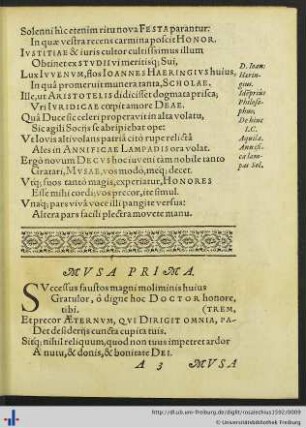 Solenni hîc etenim ritu nova FESTA parantur:
In quæ vestra recens carmina poscit HONOR.
IVSTITIAE & iuris cultor cultissimus illum
Obtinet ex STUDII vi meritisq; Sui,
Lux IVVENVM, flos IOANNES HAERINGIVS huius,
In quâ promeruit munera tanta, SCHOLAE.
Ille, ut ARISTOTELIS didicisset dogmata prisca,
Vri IVRIDICAE cœpit amore DEAE.
Quâ Duce sic celeri properavit in alta volatu,
Sic agili Socijs se abripiebat ope:
Vt Iovis altivolans patriâ citò rupe relictâ
Ales in ANNIFICAE LAMPADIS ora volat.
Ergò novum DECVS hoc iuveni tam nobile tanto
Gratari, MVSAE, vos modò, meq; decet.
Vtq; suos tantò magis, experiatur, HONORES
Esse mihi cordi; vos precor, ite simul.
Vnaq; pars vivâ voce illi pangite versus:
Altera pars facili plectra movete manu.
D. Ioan:
Haringius.
Iosephus
Philosophus,
De hinc
I.C.
Aquila.
Annifica lampas Sol.
MVSA PRIMA.
SVccessus faustos magni moliminis huius
Gratulor, ô digne hoc DOCTOR honore,
tibi. (TREM,
Et precor ÆTERNVM, QVI DIRIGIT OMNIA, PA-
Det desiderijs cuncta cupita tuis.
Sitq; nihil reliquum, quod non tuus impetret ardor
A nutu, & donis, & bonitate DEI.
A 3 MVSA
http://dl.ub.uni-freiburg.de/diglit/rosalechius1592/0009
© Universitätsbibliothek Freiburg